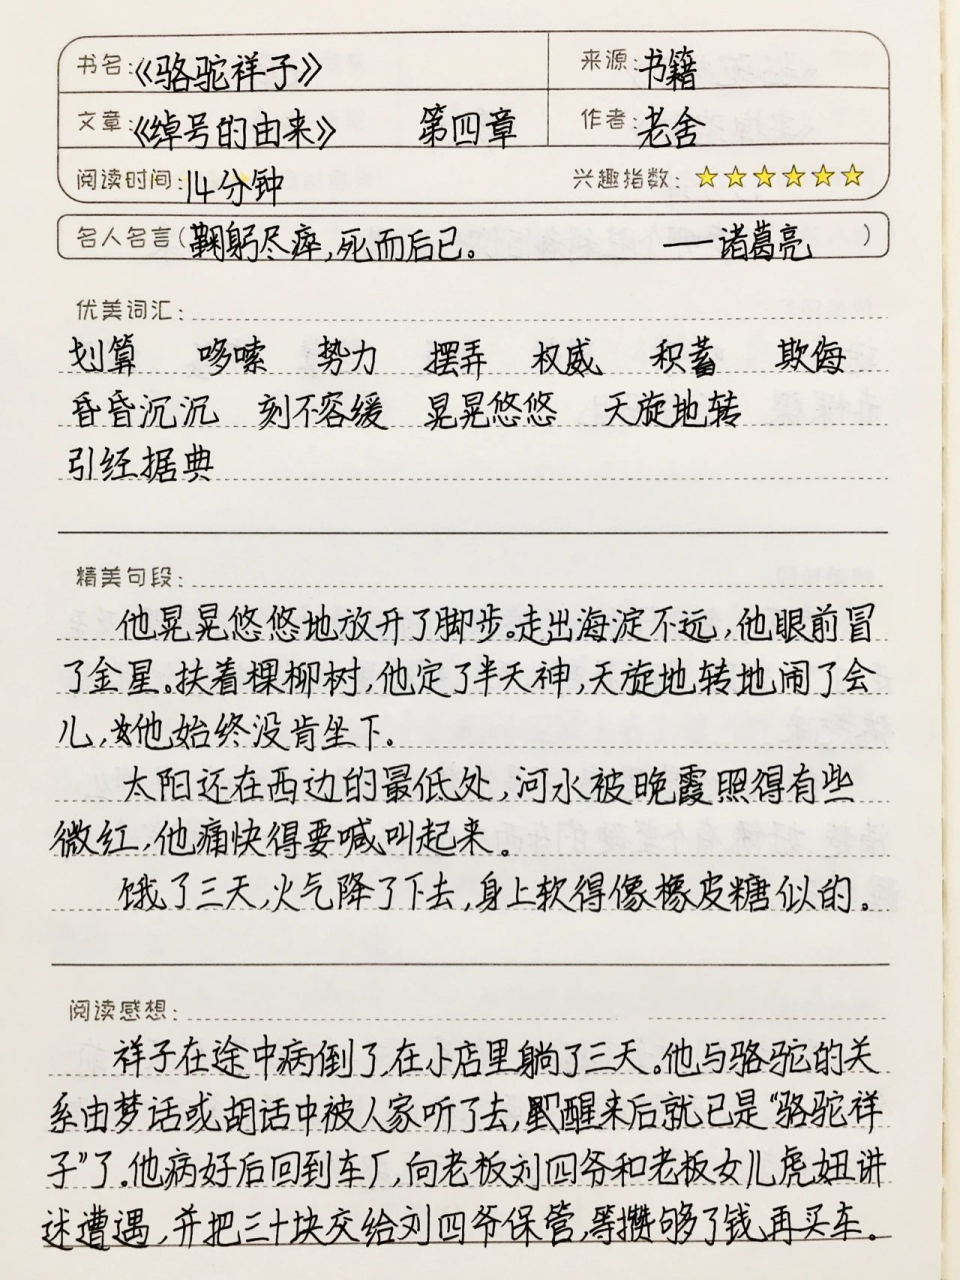 书名:《骆驼祥子》 来源:书籍
文章:《绰号的由来》 第四章 作者:老舍
阅读时间:14分钟 兴趣指数:☆☆☆☆☆☆
名人名言(鞠躬尽瘁,死而后已。 ——诸葛亮)
优美词汇:
划算 哆嗦 势力 摆弄 权威 积蓄 欺侮
昏昏沉沉 刻不容缓 晃晃悠悠 天旋地转
引经据典
精美句段:
他晃晃悠悠地放开了脚步。走出海淀不远,他眼前冒
了金星。扶着棵柳树,他定了半天神,天旋地转地闹了会
儿,他始终没肯坐下.
太阳还在西边的最低处,河水被晚霞照得有些
微红,他痛快得要喊叫起来。
饿了三天,火气降了下去,身上软得像橡皮糖似的。
阅读感想:
祥子在途中病倒了,在小店里躺了三天。他与骆驼的关
系由梦话或胡话中被人家听了去,醒来后就已是“骆驼祥
子”了.他病好后回到车厂,向老板刘四爷和老板女儿虎妞讲
述遭遇,并把三十块交给刘四爷保管,等攒够了钱,再买车。